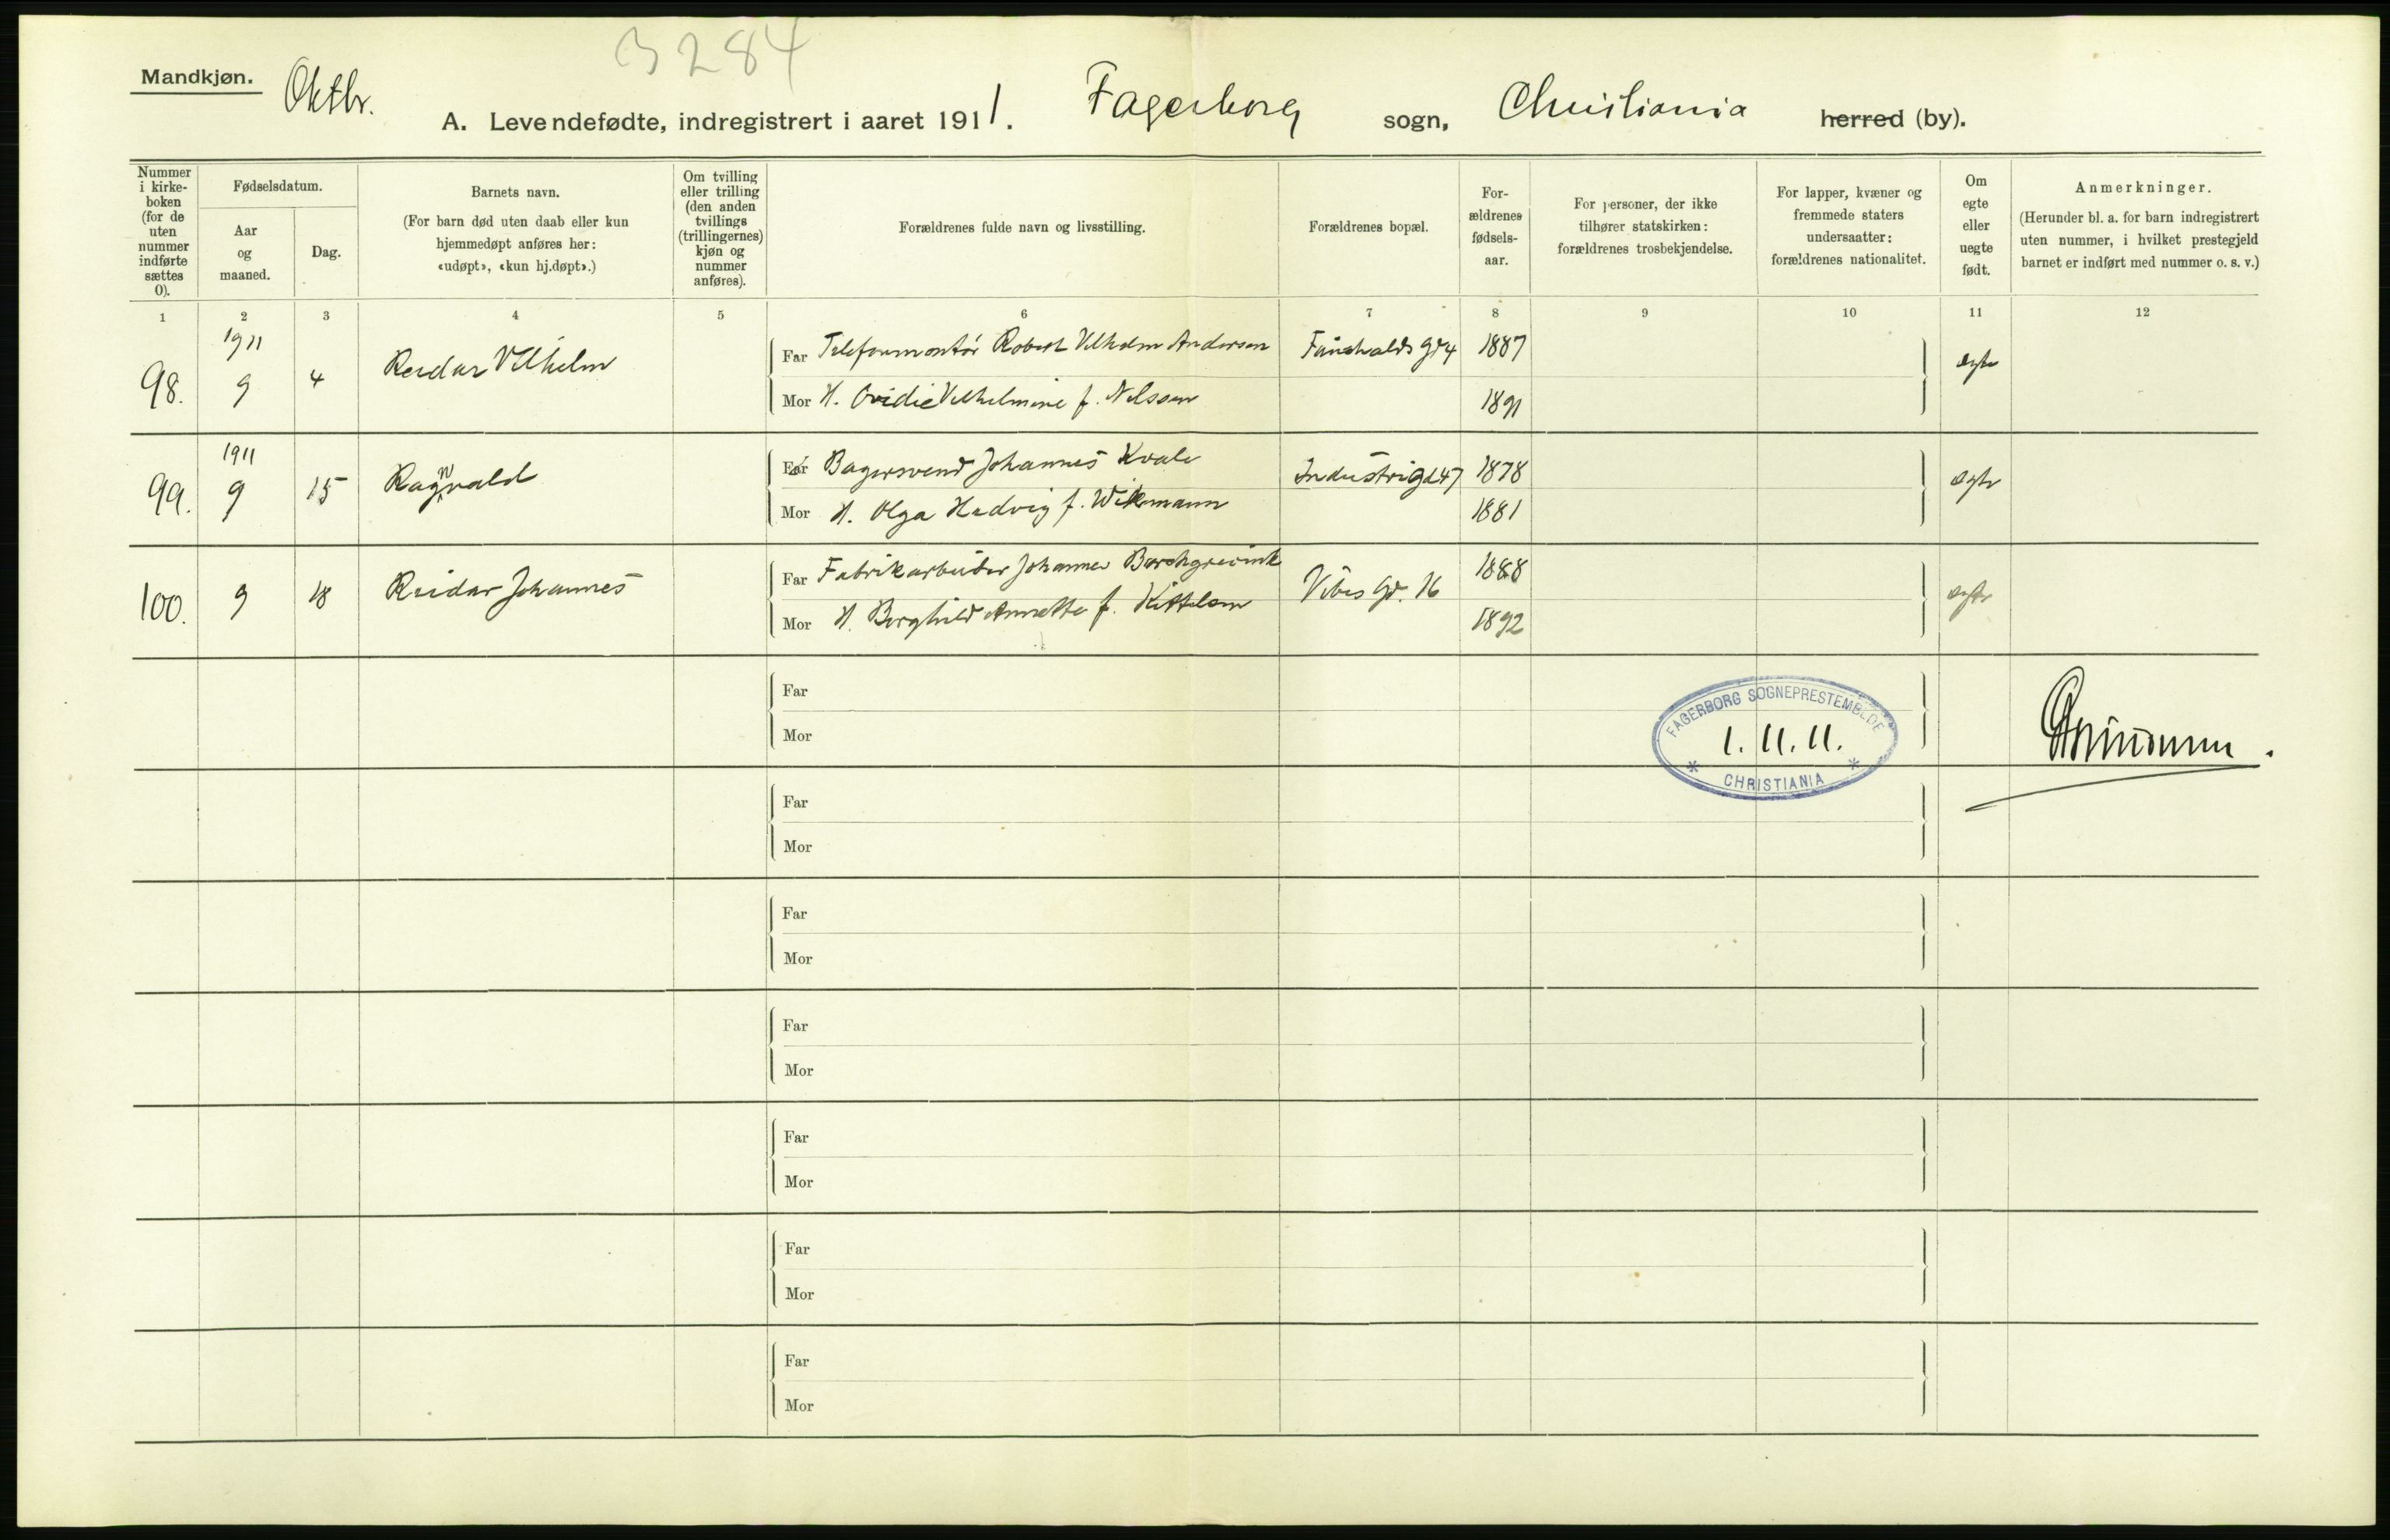 3284
Mandkjøn. Oktbr.
A. Levendefødte, indregistrert i aaret 1911. Fagerborg sogn, Christiania herred (by).
Nummer i kirke-boken (for de uten nummer indførte sættes 0).
Fødselsdatum.
Aar og maaned.
Dag.
Barnets navn.
(For barn død uten daab eller kun hjemmedøpt anføres her: «udøpt», «kun hj.døpt».)
Om tvilling eller trilling (den anden tvillings (trillingernes) kjøn og nummer anføres).
Forældrenes fulde navn og livsstilling.
Forældrenes bopæl.
For-ældrenes fødsels-aar.
For personer, der ikke tilhører statskirken: forældrenes trosbekjendelse.
For lapper, kvæner og fremmede staters undersaatter: forældrenes nationalitet.
Om egte eller uegte født.
Anmerkninger.
(Herunder bl. a. for barn indregistrert uten nummer, i hvilket prestegjeld barnet er indført med nummer o. s. v.)
1 2 3 4 5 6 7 8 9 10 11 12
98. 1911 9 4 Reidar Vilhelm
Far Telefonmontør Robert Vilhelm Andersen gd 4 1887 egte
Mor H. Ovidie Vilhelmine f. Nilssen 1891
99. 1911 9 15 Ragnvald
Far Bagersvend Johannes Kvale Industrigd 47 1878 egte
Mor H. Olga Hedvig f. Wikmann 1881
100. 9 18 Reidar Johannes
Far Fabrikarbeider Johannes Borchgrevink Vibes Gd. 16 1888 egte
Mor H. Borghild Annette f. Kittelsen 1892
Far
Mor
FAGERBORG SOGNEPRESTEMBEDE
1. 11. 11.
CHRISTIANIA
Far
Mor
Far
Mor
Far
Mor
Far
Mor
Far
Mor
Far
Mor